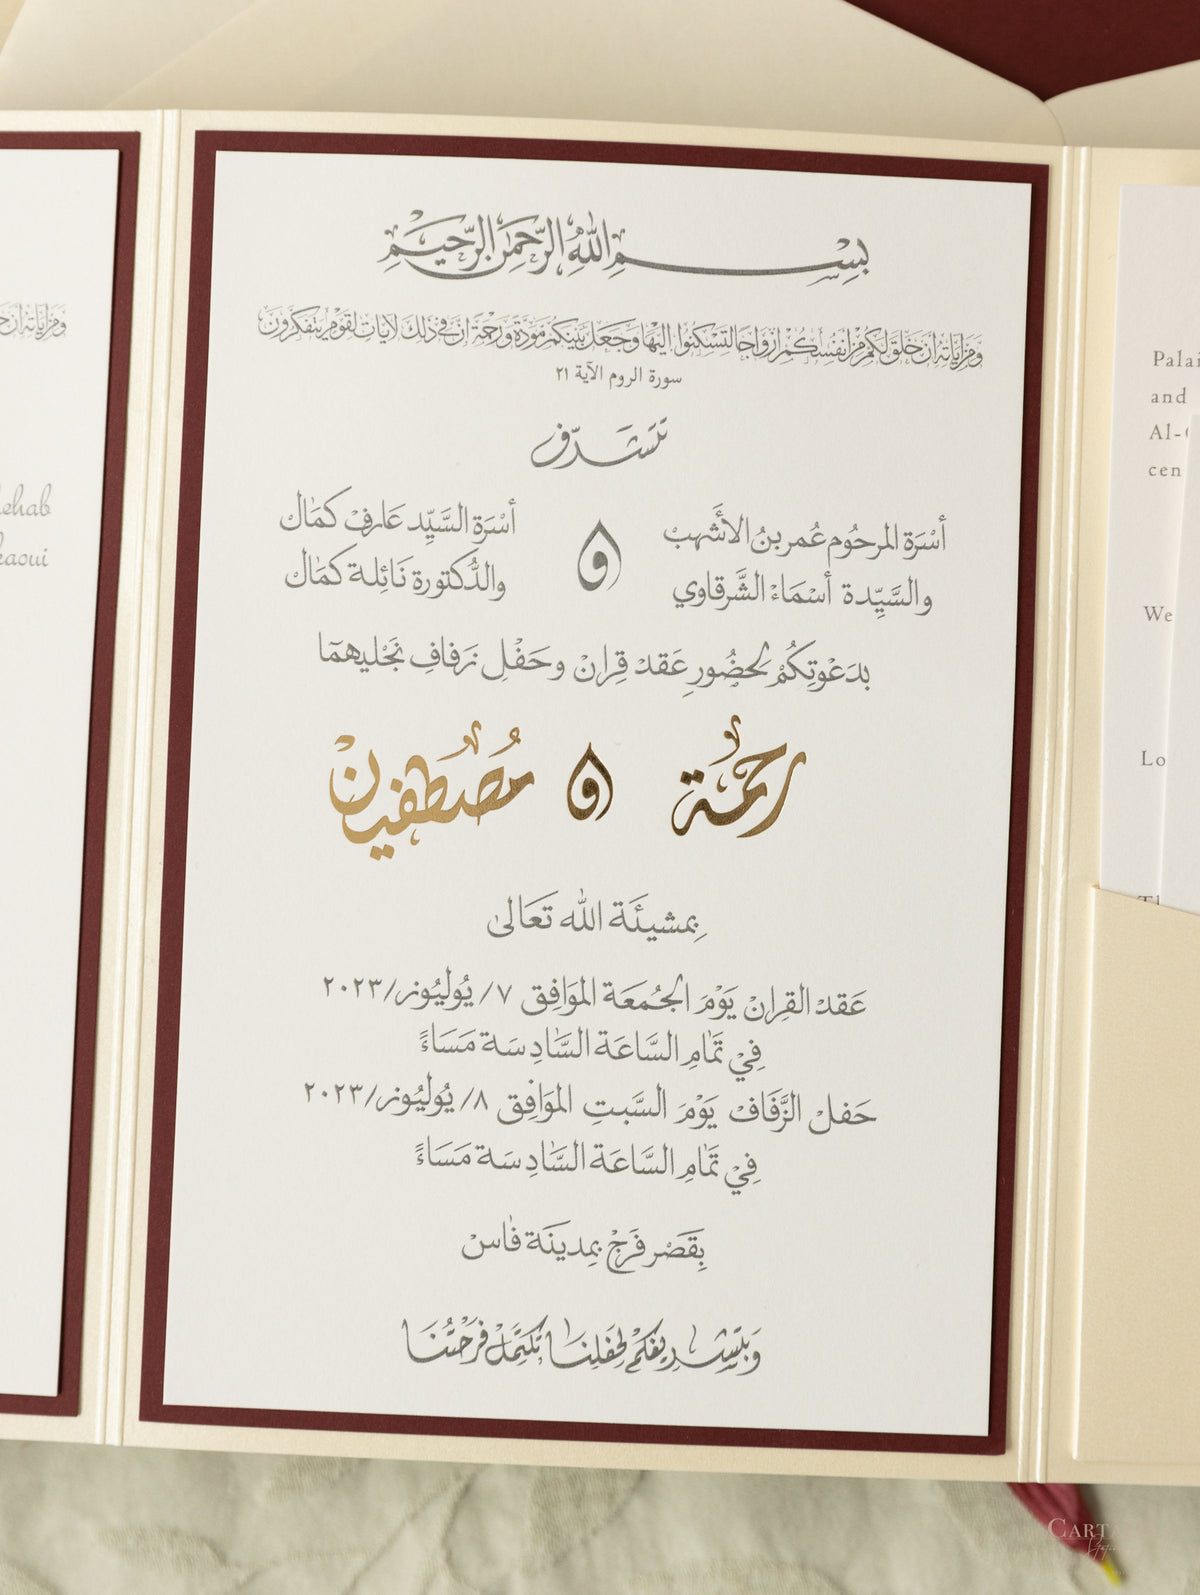 بِسْمِ اللهِ الرَّحْمَنِ الرَّحِيمِ
وَمِنْ آيَاتِهِ أَنْ خَلَقَ لَكُمْ مِنْ أَنْفُسِكُمْ أَزْوَاجًا لِتَسْكُنُوا إِلَيْهَا وَجَعَلَ بَيْنَكُمْ مَوَدَّةً وَرَحْمَةً إِنَّ فِي ذَلِكَ لَآيَاتٍ لِقَوْمٍ يَتَفَكَّرُونَ
سورة الروم الآية ٢١
تَتَشَرَّف
أسْرَة المرحُوم عُمر بنُ الأشَهب
والسَّيِّدة أسْمَاءْ الشَّرقاوي
و
أسْرَة السَّيِّد عَارِفْ كمَال
والدُّكتورة نَائِلة كمَال
بدَعْوتِكُمْ لحضُورِ عَقدْ قِرانْ وحَفْلِ زفافِ نجْليهمَا
رحْمة و مُصْطفيانْ
بِمشيئَة الله تَعَالىَ
عَقدْ القِرانْ يَوْمَ الجُمعَة الموَافِق ٧/ يُوليُوز/٢٠٢٣
فِيْ تَمَامِ السَّاعَة السَّادِسَة مَسَاءً
حَفلْ الزَّفَافْ يَوْمَ السَّبتِ الموَافِق ٨/ يُوليُوز/٢٠٢٣
فِيْ تَمَامِ السَّاعَة السَّادِسَة مَسَاءً
بِقَصْر فَرَجْ بمِدينَة فَاسْ
وَبتَشريفكمْ لحَفلِنَا تكتَملْ فرْحَتُنَا
وَمِنْ آيَاتِهِ أَنْ
ehab
kaoui
Palai
and
Al-
cen
We
Lo
CARTA